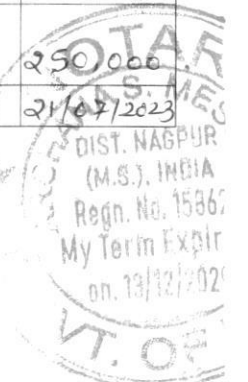 250,000
21/07/2023
NOTAR
S. MES
DIST. NAGPUR
(M.S.), INDIA
Regn. No. 1586
My Term Expir
on. 13/12/202
VT. OF